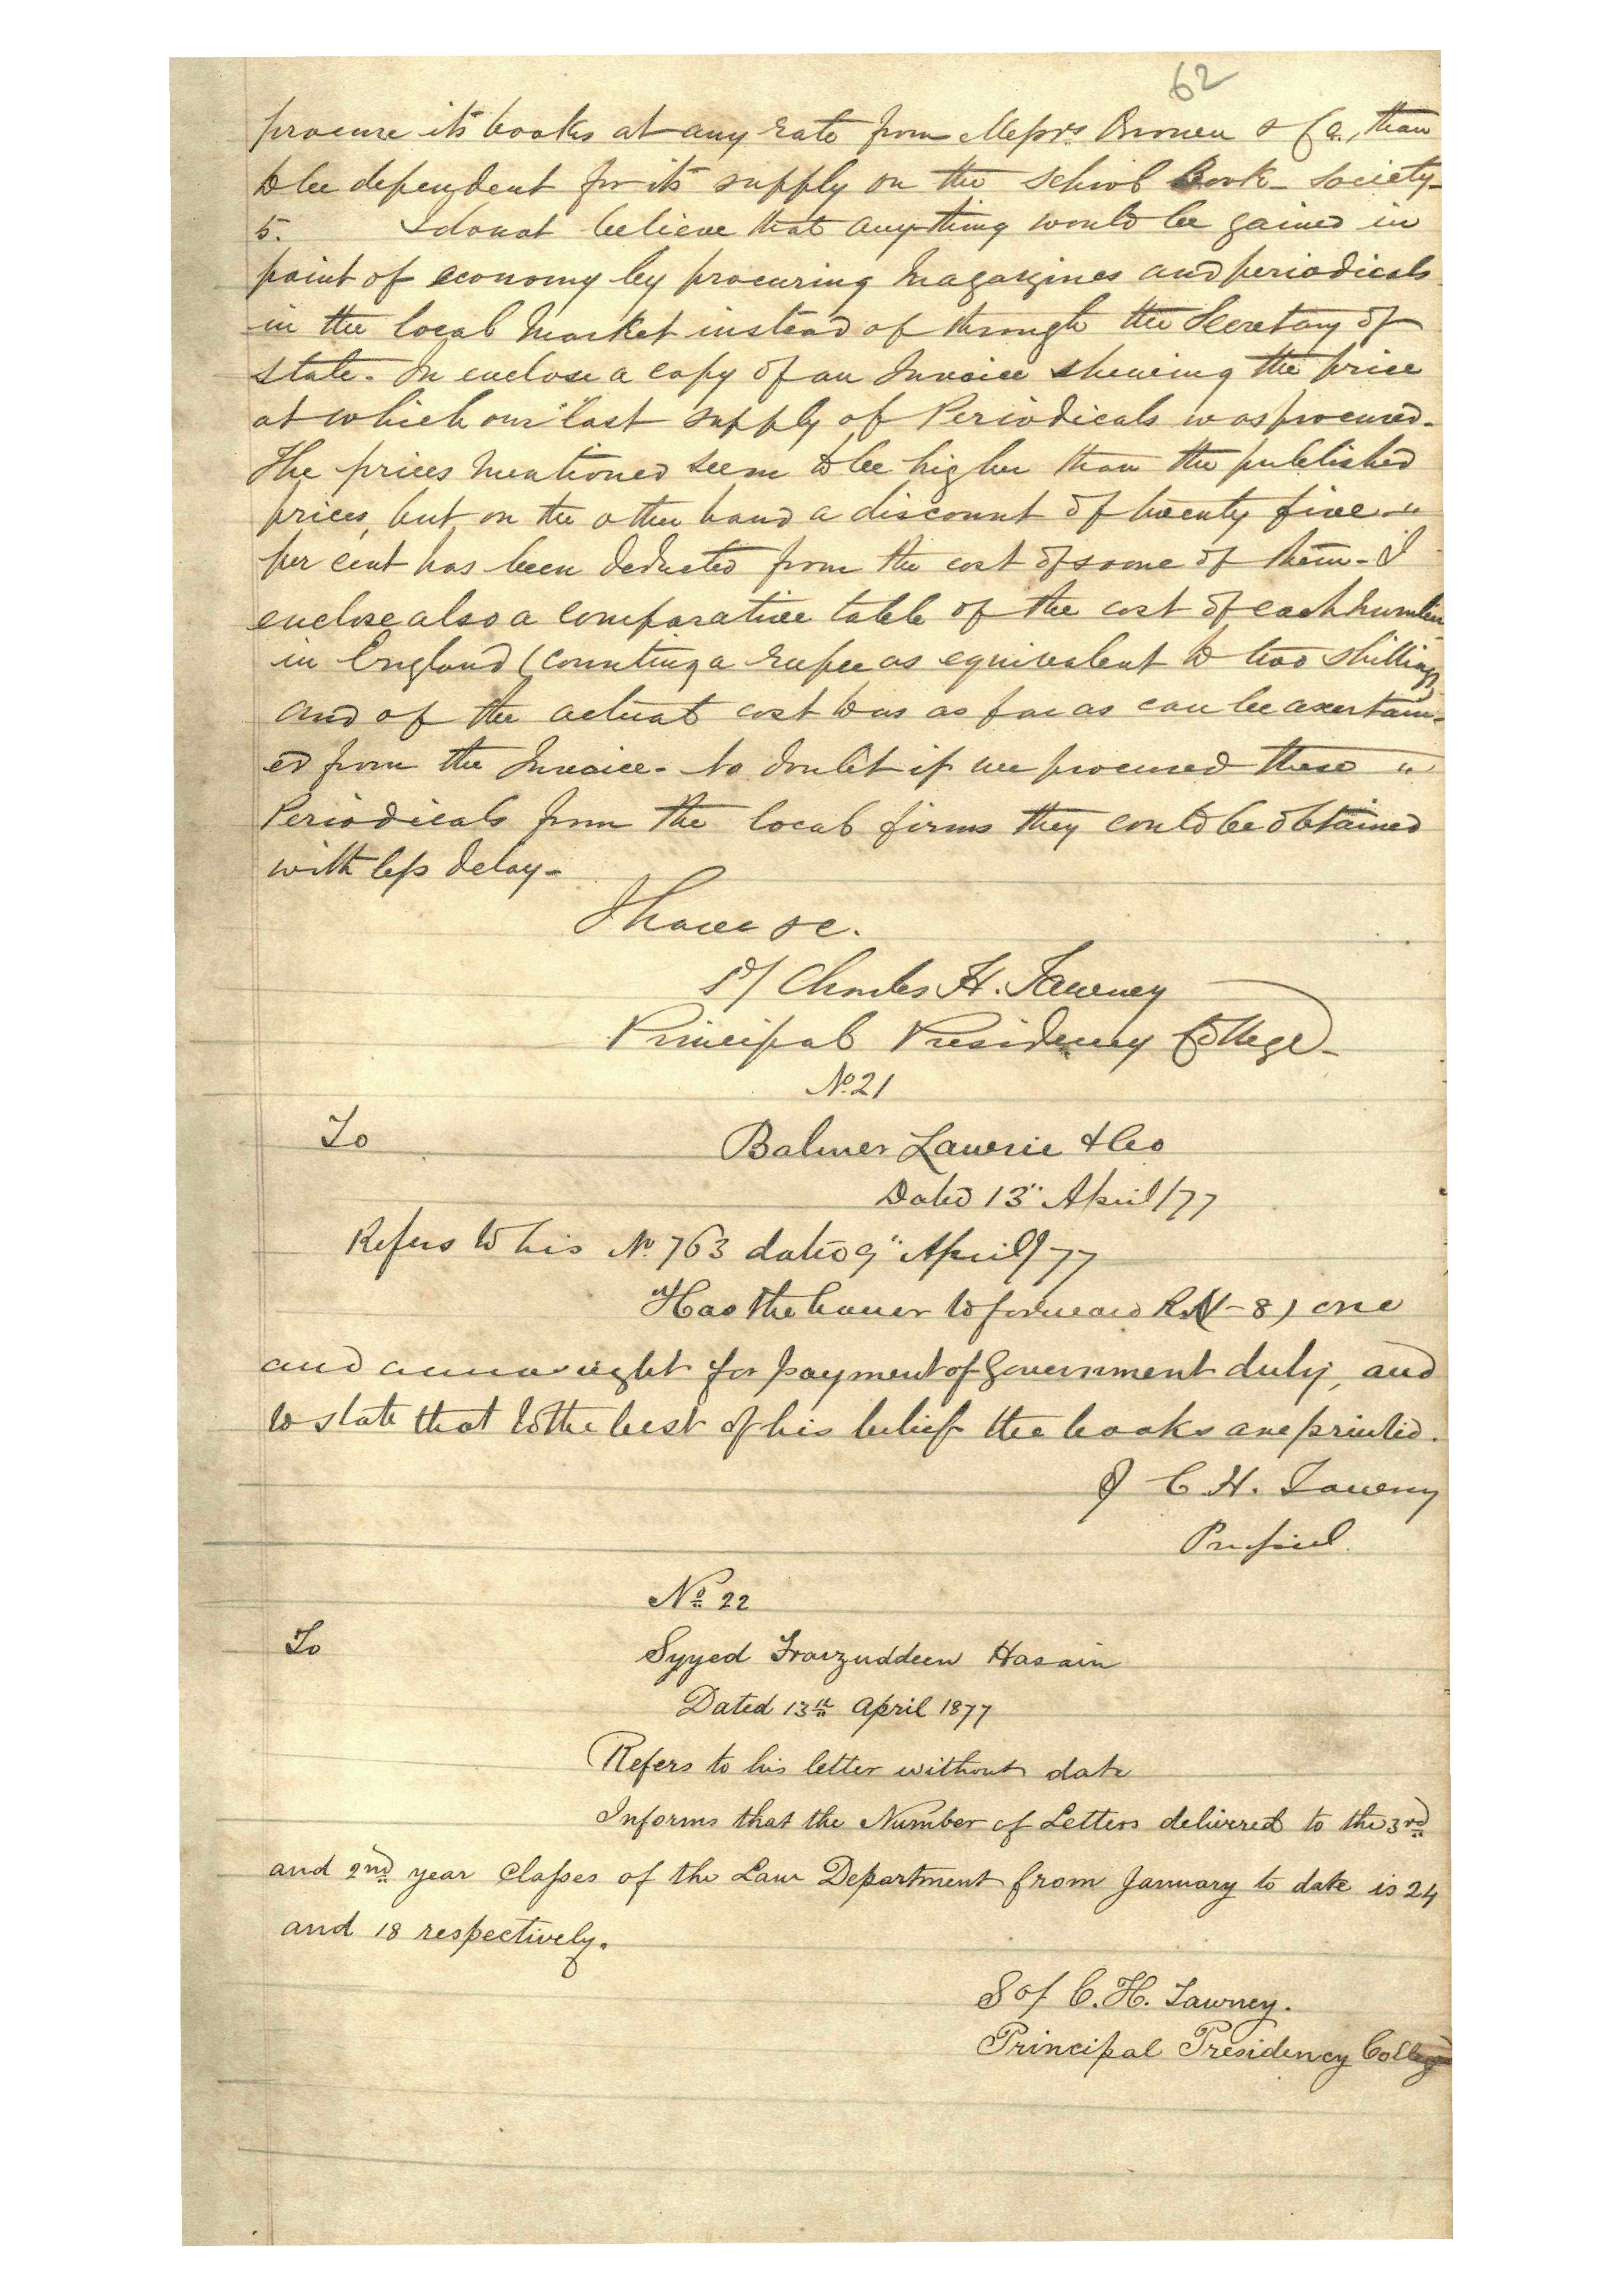 62
procure its books at any rate from Messrs. & Co., than
to be dependent for its supply on the School Book Society-
5. I do not believe that anything would be gained in
point of economy by procuring Magazines and periodicals
in the local Market instead of through the Secretary of
State. In enclose a copy of an Invoice shewing the price
at which our last supply of Periodicals was procured.
The prices Mentioned seem to be higher than the published
prices, but on the other hand a discount of twenty five "
per cent has been deducted from the cost of some of them- I
enclose also a comparative table of the cost of each number
in England (counting a rupee as equivalent to two shillings)
and of the actual cost to us as far as can be ascertain-
ed from the Invoice- No doubt if we procured these "
Periodicals from the local firms they could be obtained
with less delay-
I have &c.
Sd/ Charles H. Tawney
Principal Presidency College-
No. 21
To
Balmer Lawrie & Co
Dated 13" April/77
Refers to his No. 763 dated 9" April/77
Has the honor to forward (1-8) one
and annas eight for payment of Government duty, and
to state that to the best of his belief the books are printed.
C. H. Tawney
Principal.
No. 22
To
Syyed Hasain
Dated 13th April 1877
Refers to his letter without date
Informs that the Number of Letters delivered to the 3rd
and 2nd year Classes of the Law Department from January to date is 24
and 18 respectively.
Sd/ C. H. Tawney.
Principal Presidency College